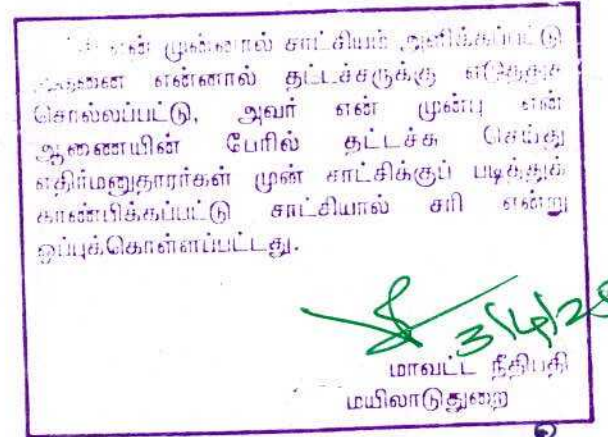 என் முன்னால் சாட்சியம் அளிக்கப்பட்டு
என்னால் தட்டச்சருக்கு எடுத்துச்
சொல்லப்பட்டு, அவர் என் முன்பு என்
ஆணையின் பேரில் தட்டச்சு செய்து
எதிர்மனுதாரர்கள் முன் சாட்சிக்குப் படித்துக்
காண்பிக்கப்பட்டு சாட்சியால் சரி என்று
ஒப்புக்கொள்ளப்பட்டது.
3/4/25
மாவட்ட நீதிபதி
மயிலாடுதுறை